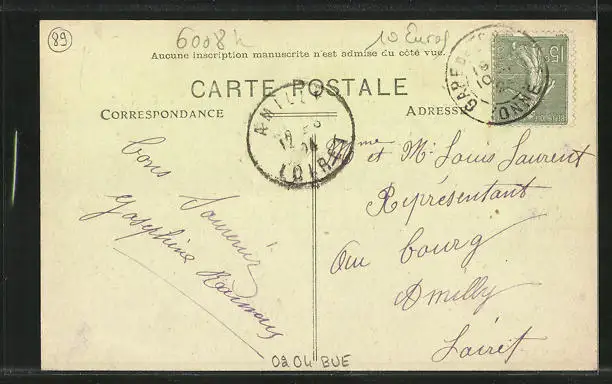 89
6008h
10 Euros
Aucune inscription manuscrite n'est admise du côté vue.
CARTE POSTALE
CORRESPONDANCE
ADRESSE
AMILLY
LOIRET
GARE DE
15c
Bons
Souvenirs
Joséphine
Mme et Mr Louis Laurent
Représentant
Au bourg
Amilly
Loiret
0204 BUE